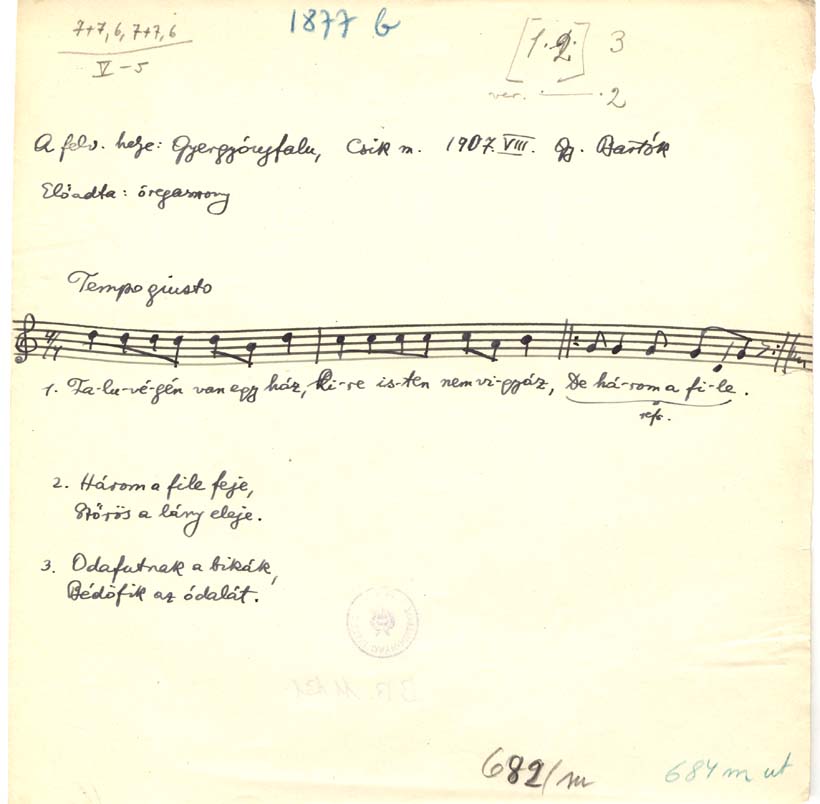 7+7, 6, 7+7, 6
V-5
1877 b
[1. 2.] 3
ver. — . 2
A felv. helye: Gyergyóújfalu, Csík m. 1907. VIII. Gy. Bartók
Előadta: öregasszony
Tempo giusto
1. Fa-lu-vé-gén van egy ház, Ki-re is-ten nem vi-gyáz, De há-rom a fi-le.
refr.
2. Három a file feje,
Szőrös a lány eleje.
3. Odafutnak a bikák,
Bédöfik az ódalát.
682/m
684 m ut